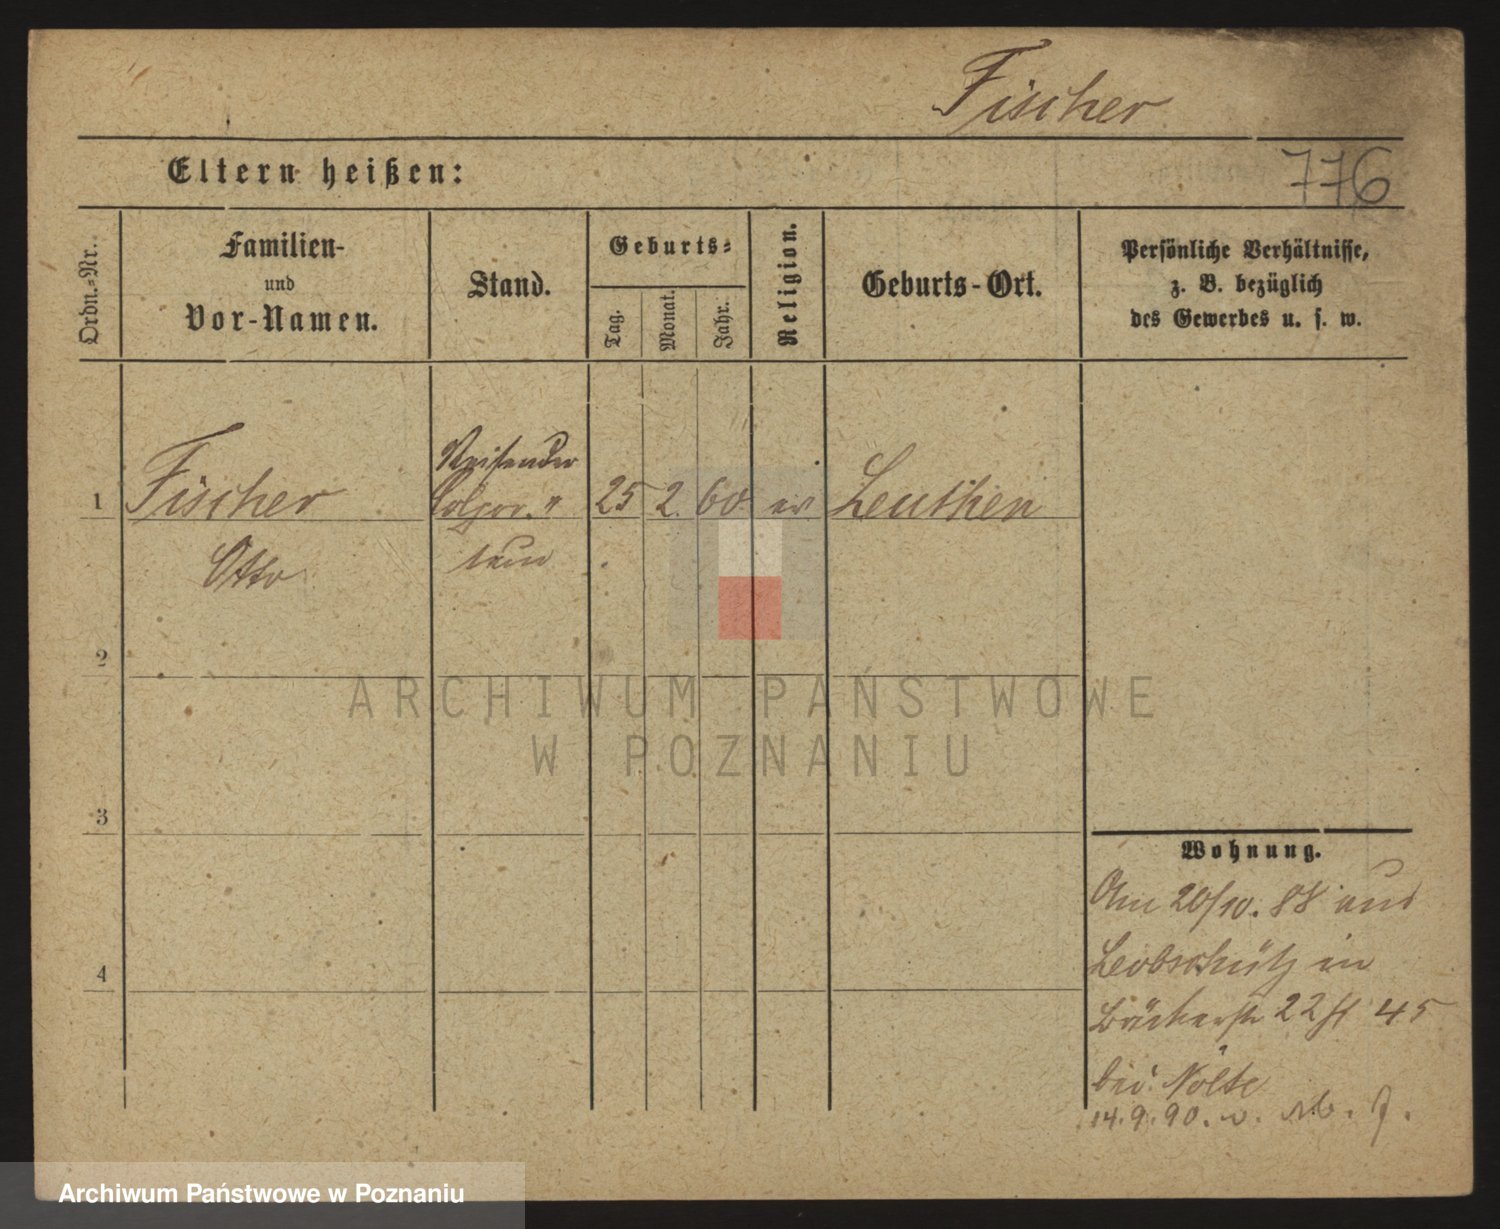 Fischer
Eltern heißen:
776
Ordn.-Nr.
Familien-
und
Vor-Namen.
Stand.
Geburts-
Tag.
Monat.
Jahr.
Religion.
Geburts-Ort.
Persönliche Verhältnisse,
z. B. bezüglich
des Gewerbes u. s. w.
Reisender
1 Fischer Colpor." 25 2. 60. ev Leuthen
Otto teur
2
3
4
Wohnung.
Am 20/10. 88 aus
Leobschütz in
Bäckerstr 22 45
bei Nolte
14.9.90. v.
ARCHIWUM PAŃSTWOWE
W POZNANIU
Archiwum Państwowe w Poznaniu